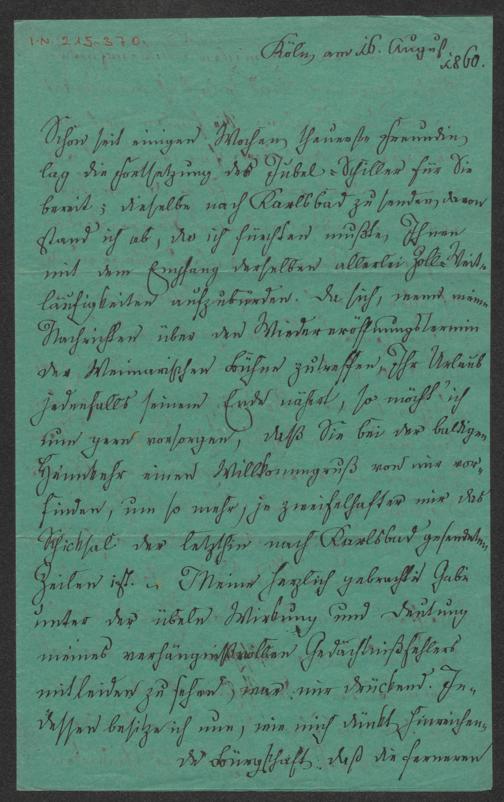 I.N. 215.370.
Köln, am 16. August
1860.
Schon seit einigen Wochen, theuerste Freundin,
lag die Fortsetzung des Jubel-Schiller für Sie
bereit; dieselbe nach Karlsbad zu senden, davon
stand ich ab, da ich fürchten mußte, Ihnen
mit dem Empfang derselben allerlei Zoll-Weit-
läufigkeiten aufzubürden. Da sich, wenn meine
Nachrichten über den Wiedereröffnungstermin
der Weimarischen Bühne zutreffen, Ihr Urlaub
jedenfalls seinem Ende nähert, so möcht' ich
nun gern vorsorgen, daß Sie bei der baldigen
Heimkehr einen Willkommgruß von mir vor-
finden, um so mehr, je zweifelhafter mir das
Schicksal der letzthin nach Karlsbad gesendeten
Zeilen ist. – Meine herzlich gebrachte Gabe
unter der übeln Wirkung und Deutung
meines verhängnißvollen Gedächtnißfehlers
mitleiden zu sehen, war mir drückend. In-
dessen besitze ich nun, wie mich dünkt, hinreichen-
de Bürgschaft, daß die ferneren